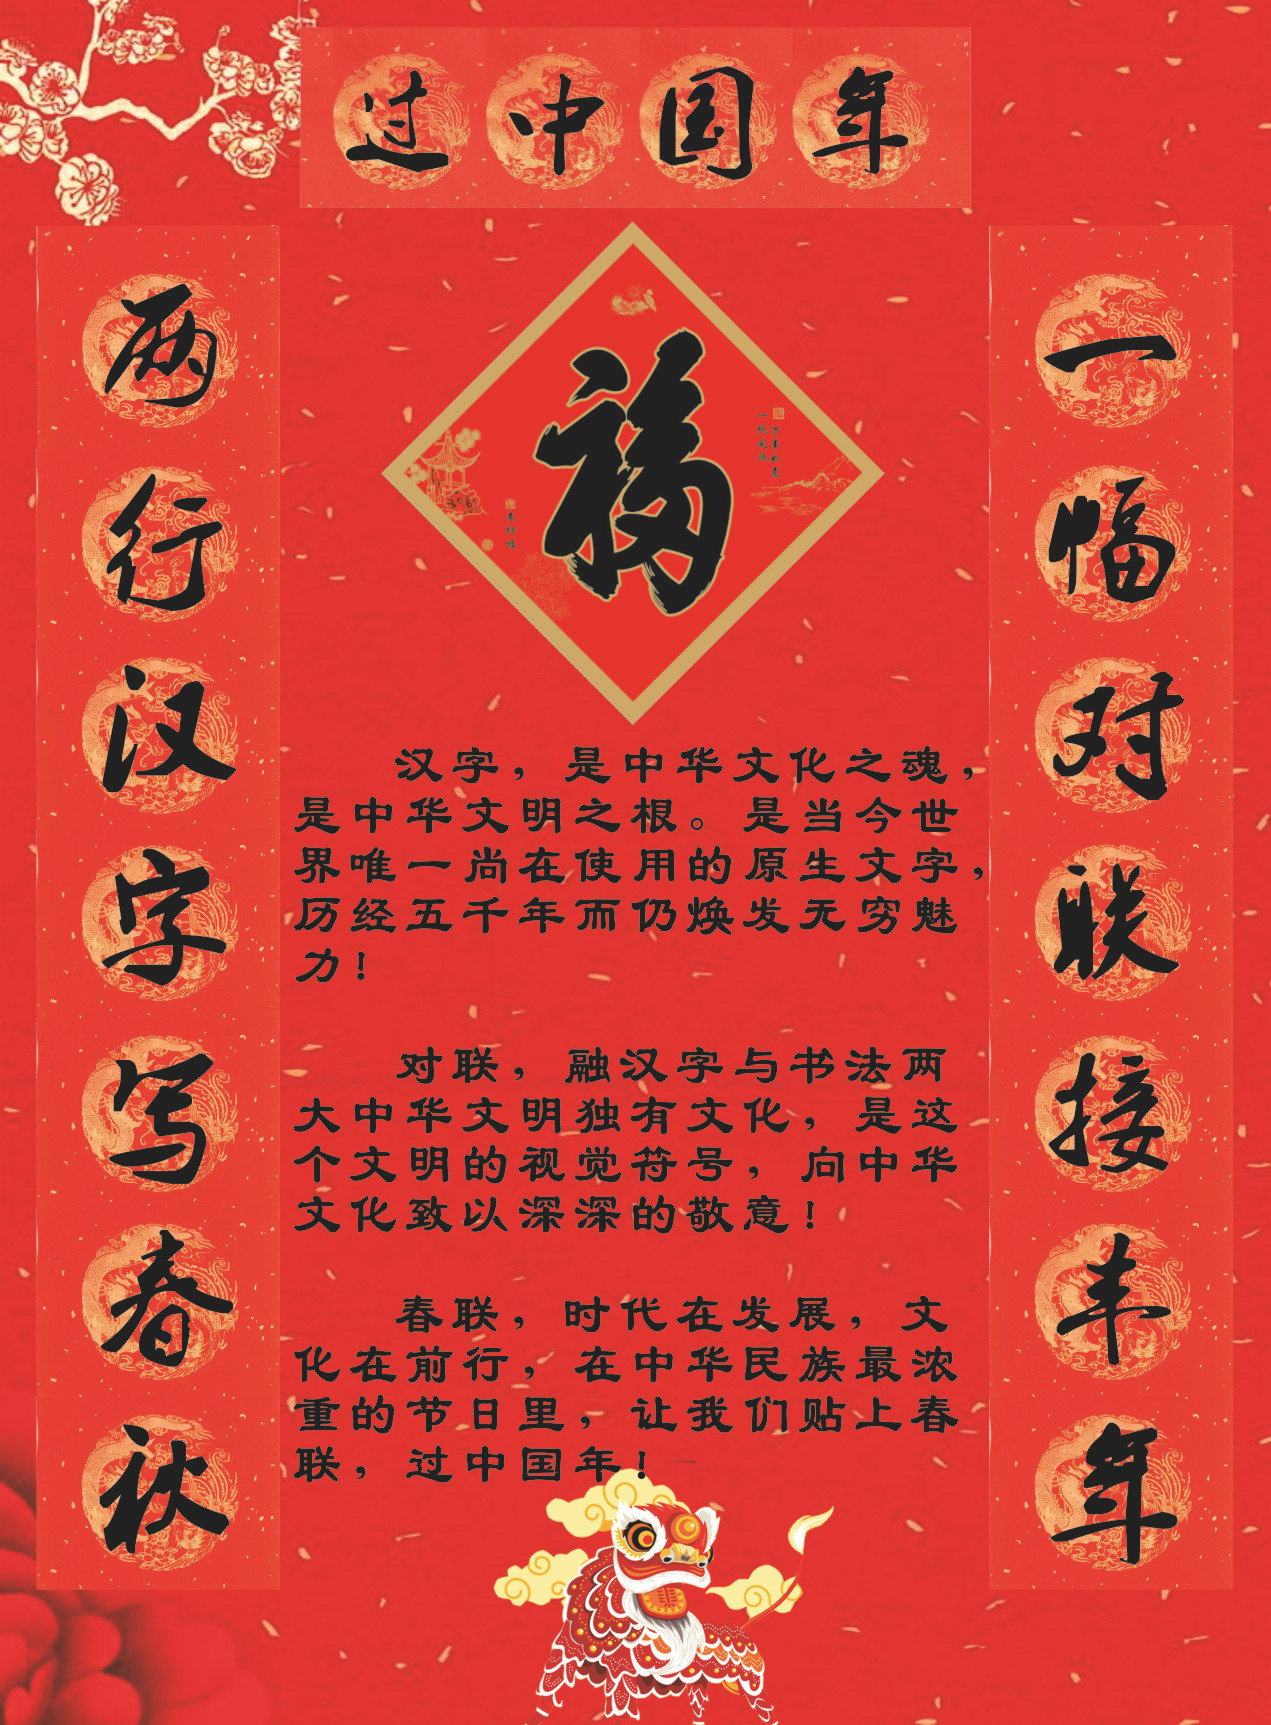 过中国年
一幅对联接丰年
两行汉字写春秋
福
万事如意
一帆风顺
汉字，是中华文化之魂，
是中华文明之根。是当今世
界唯一尚在使用的原生文字，
历经五千年而仍焕发无穷魅
力！
对联，融汉字与书法两
大中华文明独有文化，是这
个文明的视觉符号，向中华
文化致以深深的敬意！
春联，时代在发展，文
化在前行，在中华民族最浓
重的节日里，让我们贴上春
联，过中国年！